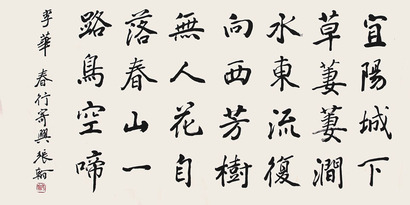 宜陽城下
草萋萋澗
水東流復
向西芳樹
無人花自
落春山一
路鳥空啼
李華 春行寄興 張翰